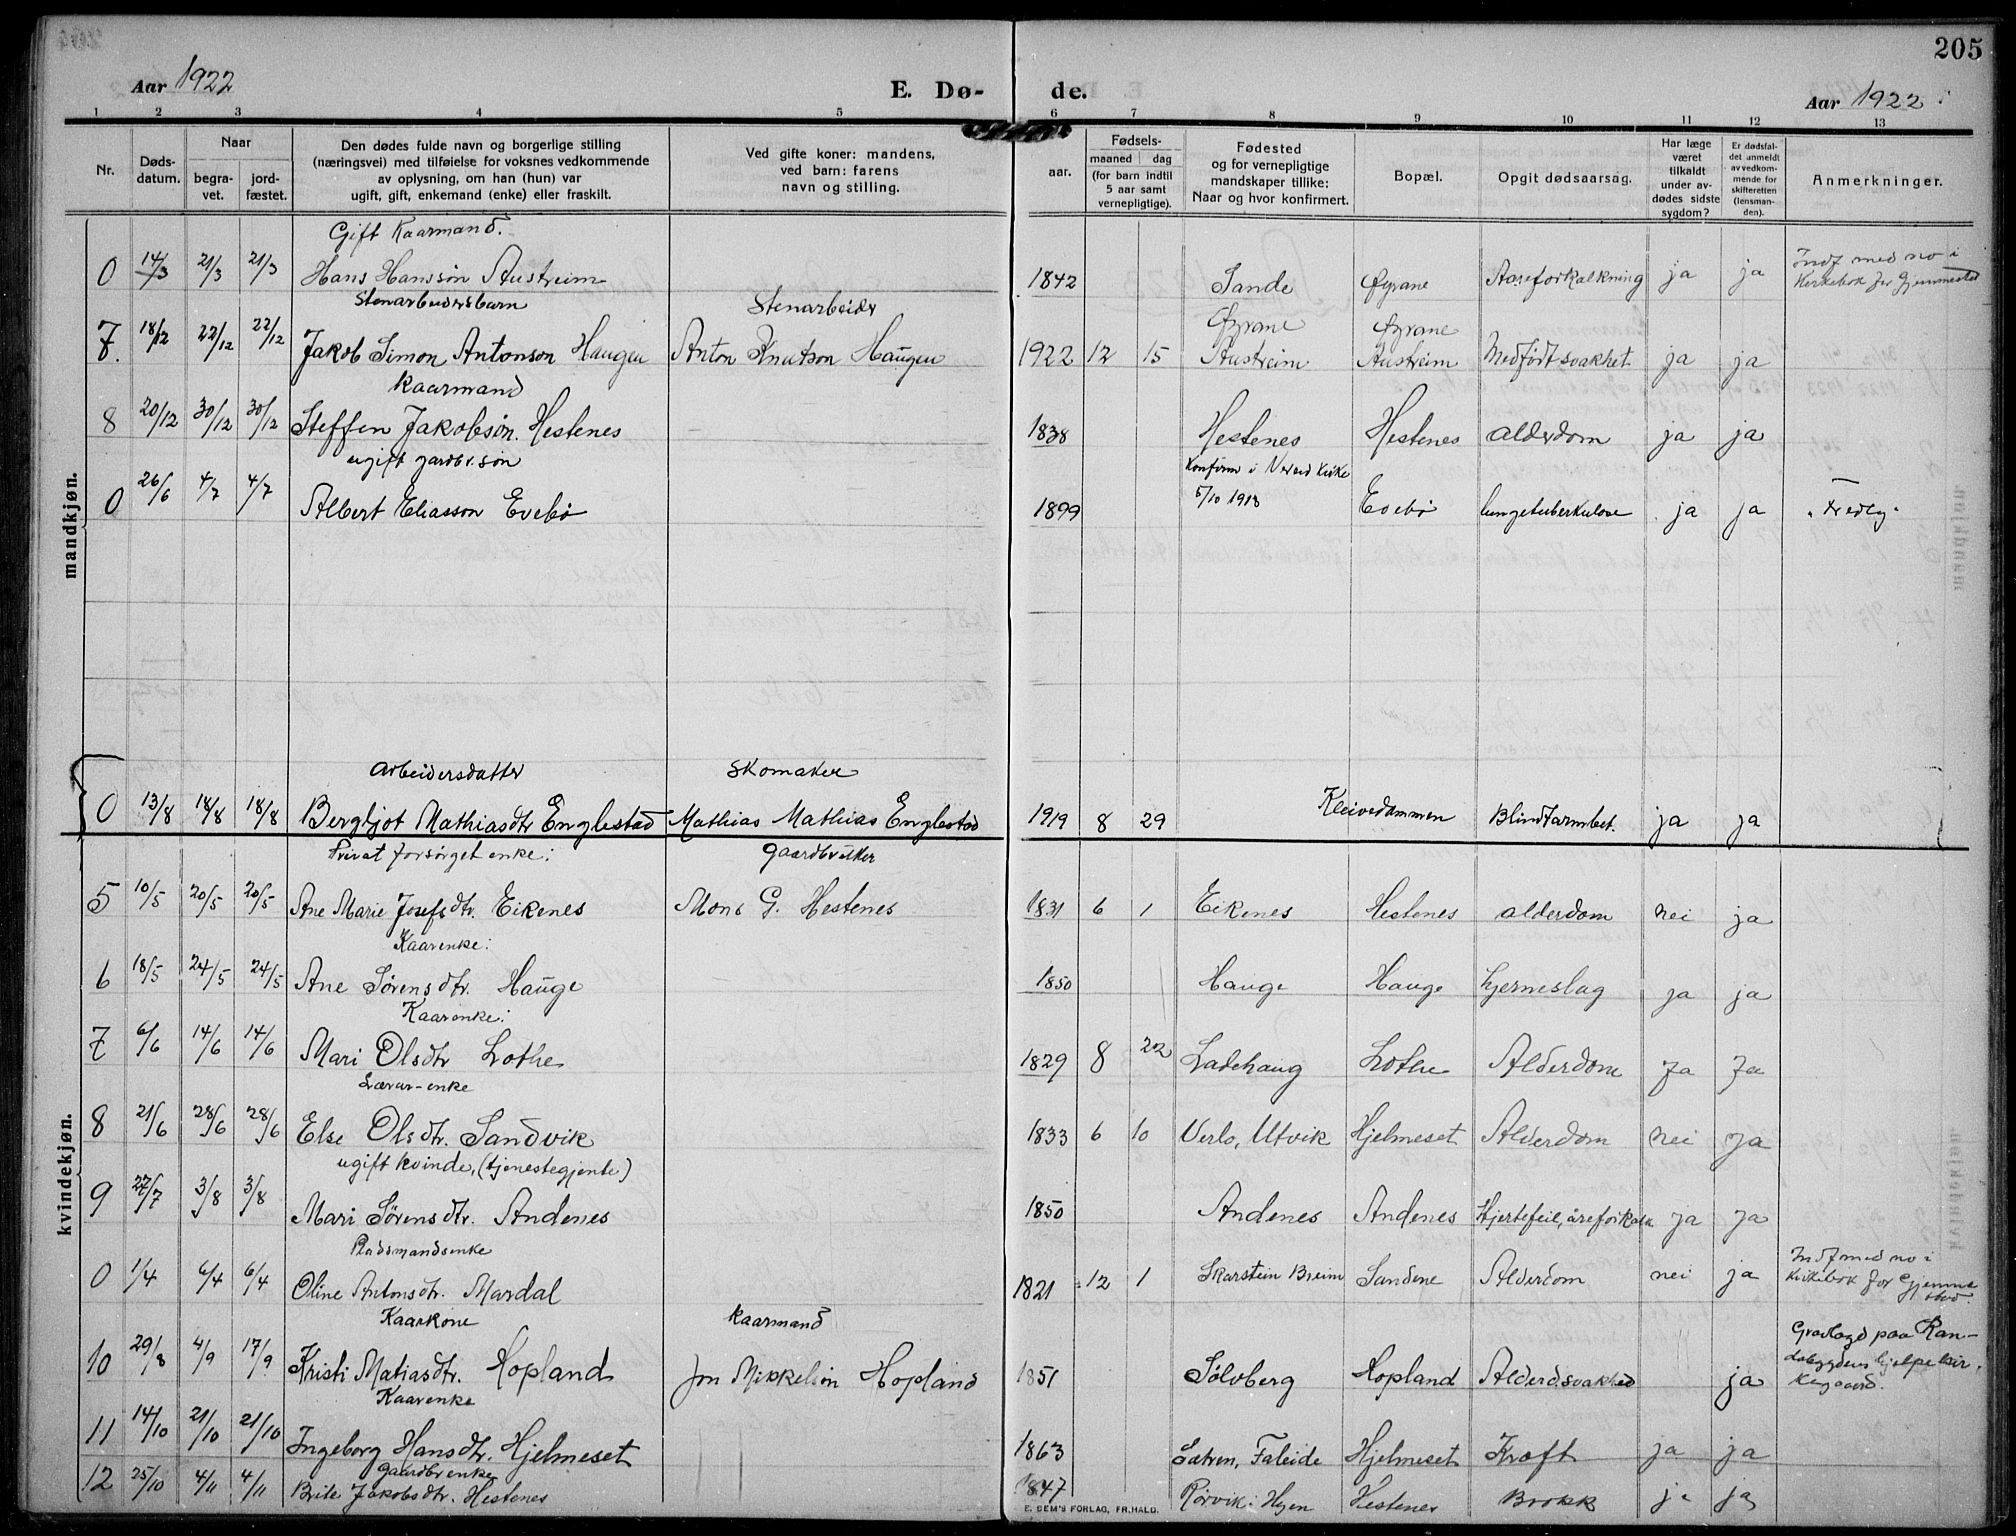 205
Aar 1922
E. Dø-
de.
Aar 1922
1 2 3 4 5 6 7 8 9 10 11 12 13
Nr.
Døds-
datum.
Naar
begra-
vet.
jord-
fæstet.
Den dødes fulde navn og borgerlige stilling
(næringsvei) med tilføielse for voksnes vedkommende
av oplysning, om han (hun) var
ugift, gift, enkemand (enke) eller fraskilt.
Ved gifte koner: mandens,
ved barn: farens
navn og stilling.
Fødsels-
aar.
maaned dag
(for barn indtil
5 aar samt
vernepligtige).
Fødested
og for vernepligtige
mandskaper tillike:
Naar og hvor konfirmert.
Bopæl.
Opgit dødsaarsag.
Har læge
været
tilkaldt
under av-
dødes sidste
sygdom?
Er dødsfal-
det anmeldt
av vedkom-
mende for
skifteretten
(lensman-
den).
Anmerkninger.
mandkjøn.
Gift Kaarmand.
0 14/3 21/3 21/3 Hans Hansson Austreim 1842 Sande Øyrane Aareforkalkning ja ja Indf med no i
Kirkebok for Gjemmestad
Stenarbeidersbarn Stenarbeider Øyrane Øyrane
7. 18/12 22/12 22/12 Jakob Simon Antonson Haugen Anton Knutson Haugen 1922 12 15 Austreim Austreim Medfødt svakhet ja ja
Kaarmand
8 20/12 30/12 30/12 Steffen Jakobson Hestenes 1838 Hestenes Hestenes alderdom ja ja
ugift gardbr.søn Konfirm i Vereid kirke
0 26/6 4/7 4/7 Albert Eliasson Evebø 1899 5/10 1913 Evebø lungetuberkulose ja ja "Fredly"
Arbeidersdatter Skomaker
0 13/8 18/8 18/8 Bergljot Mathiasdtr Englestad Mathias Mathias Englestad 1919 8 29 Kleivedammen Blindtarmbet. ja ja
kvindekjøn.
Privat forsørget enke: Gaardbruker
5 10/5 20/5 20/5 Ane Marie Josefsdtr. Eikenes Mons G. Hestenes 1831 6 1 Eikenes Hestenes alderdom nei ja
Kaarenke:
6 18/5 24/5 24/5 Ane Sørensdtr. Hauge 1850 Hauge Hauge hjerneslag ja ja
Kaarenke:
7 6/6 14/6 14/6 Mari Olsdtr Lothe 1829 8 22 Ladehaug Lothe Alderdom Ja Ja
Lærar-enke
8 21/6 28/6 28/6 Else Olsdtr. Sandvik 1833 6 10 Verlo, Utvik Hjelmeset Alderdom nei Ja
ugift kvinde, (tjenestegjente)
9 27/7 3/8 3/8 Mari Sørensdtr. Andenes 1850 Andenes Andenes Hjertefeil, åreforkalk ja Ja
Pladsmandsenke
0 1/4 6/4 6/4 Oline Antonsdtr. Mardal 1821 12 1 Skarstein Breim Sandene Alderdom nei ja Indf med no i
Kirkebok for Gjemme
stad.
Kaarkone kaarmand
10 29/8 4/9 17/9 Kristi Matiasdtr. Hopland Jon Mikkelson Hopland 1851 Sølvberg Hopland Alderd.svakhed ja Gravlagd paa Ran-
dabygdens hjelpekir.
kegaard.
Kaarenke
11 14/10 21/10 21/10 Ingeborg Hansdtr. Hjelmeset 1863 Sætren, Faleide Hjelmeset Kræft ja ja
Gaardbr enke
12 25/10 4/11 4/11 Brite Jakobsdtr. Hestenes 1847 Rørvik i Hyen Hestenes Brokk ja ja
E. SEM'S FORLAG, FR.HALD.